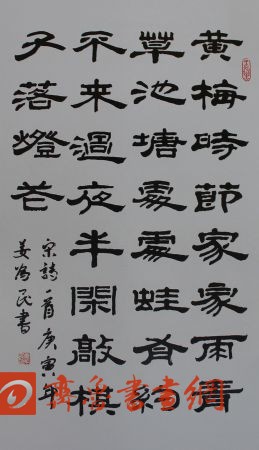 黄梅時節家家雨青
草池塘處處蛙有約
不来過夜半閑敲棋
子落燈花
宋詩一首庚寅年
姜民書
齊魯書畫網